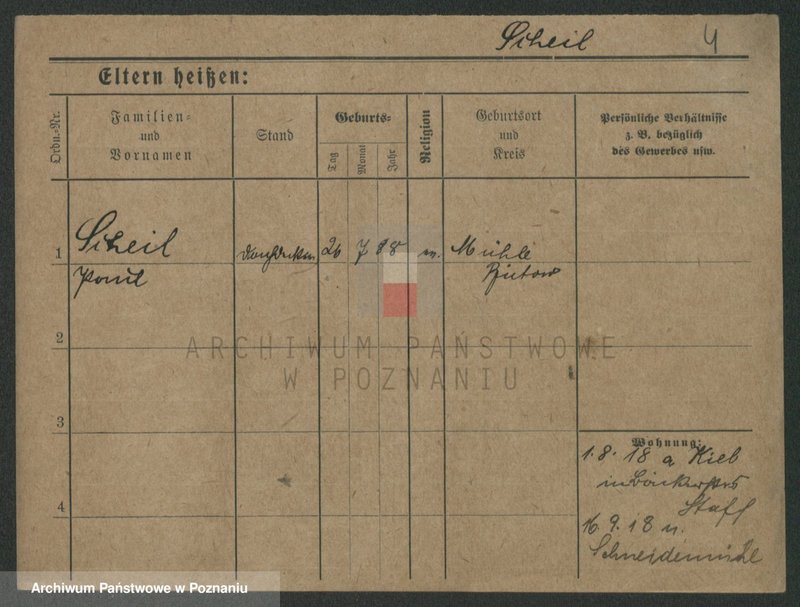 Scheil 4
Eltern heißen:
Ordn.-Nr.
Familien-
und
Vornamen
Stand
Geburts-
Tag
Monat
Jahr
Religion
Geburtsort
und
Kreis
Persönliche Verhältnisse
z. B. bezüglich
des Gewerbes usw.
1 Scheil 26 7 88 Mühle
Paul Bütow
2
ARCHIWUM PAŃSTWOWE
W POZNANIU
3
Wohnung:
1. 8. 18 a Kieb
in
4
16. 9. 18 n.
Schneidemühl
Archiwum Państwowe w Poznaniu